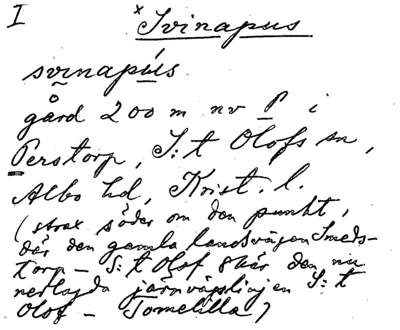 I × Svinapus
svinapús
gård 200 m nv P i
Perstorp, S:t Olofs sn,
Albo hd, Krist. l.
(strax söder om den punkt,
där den gamla landsvägen Smeds-
torp – S:t Olof skär den nu
nerlagda järnvägslinjen S:t
Olof – Tomelilla)